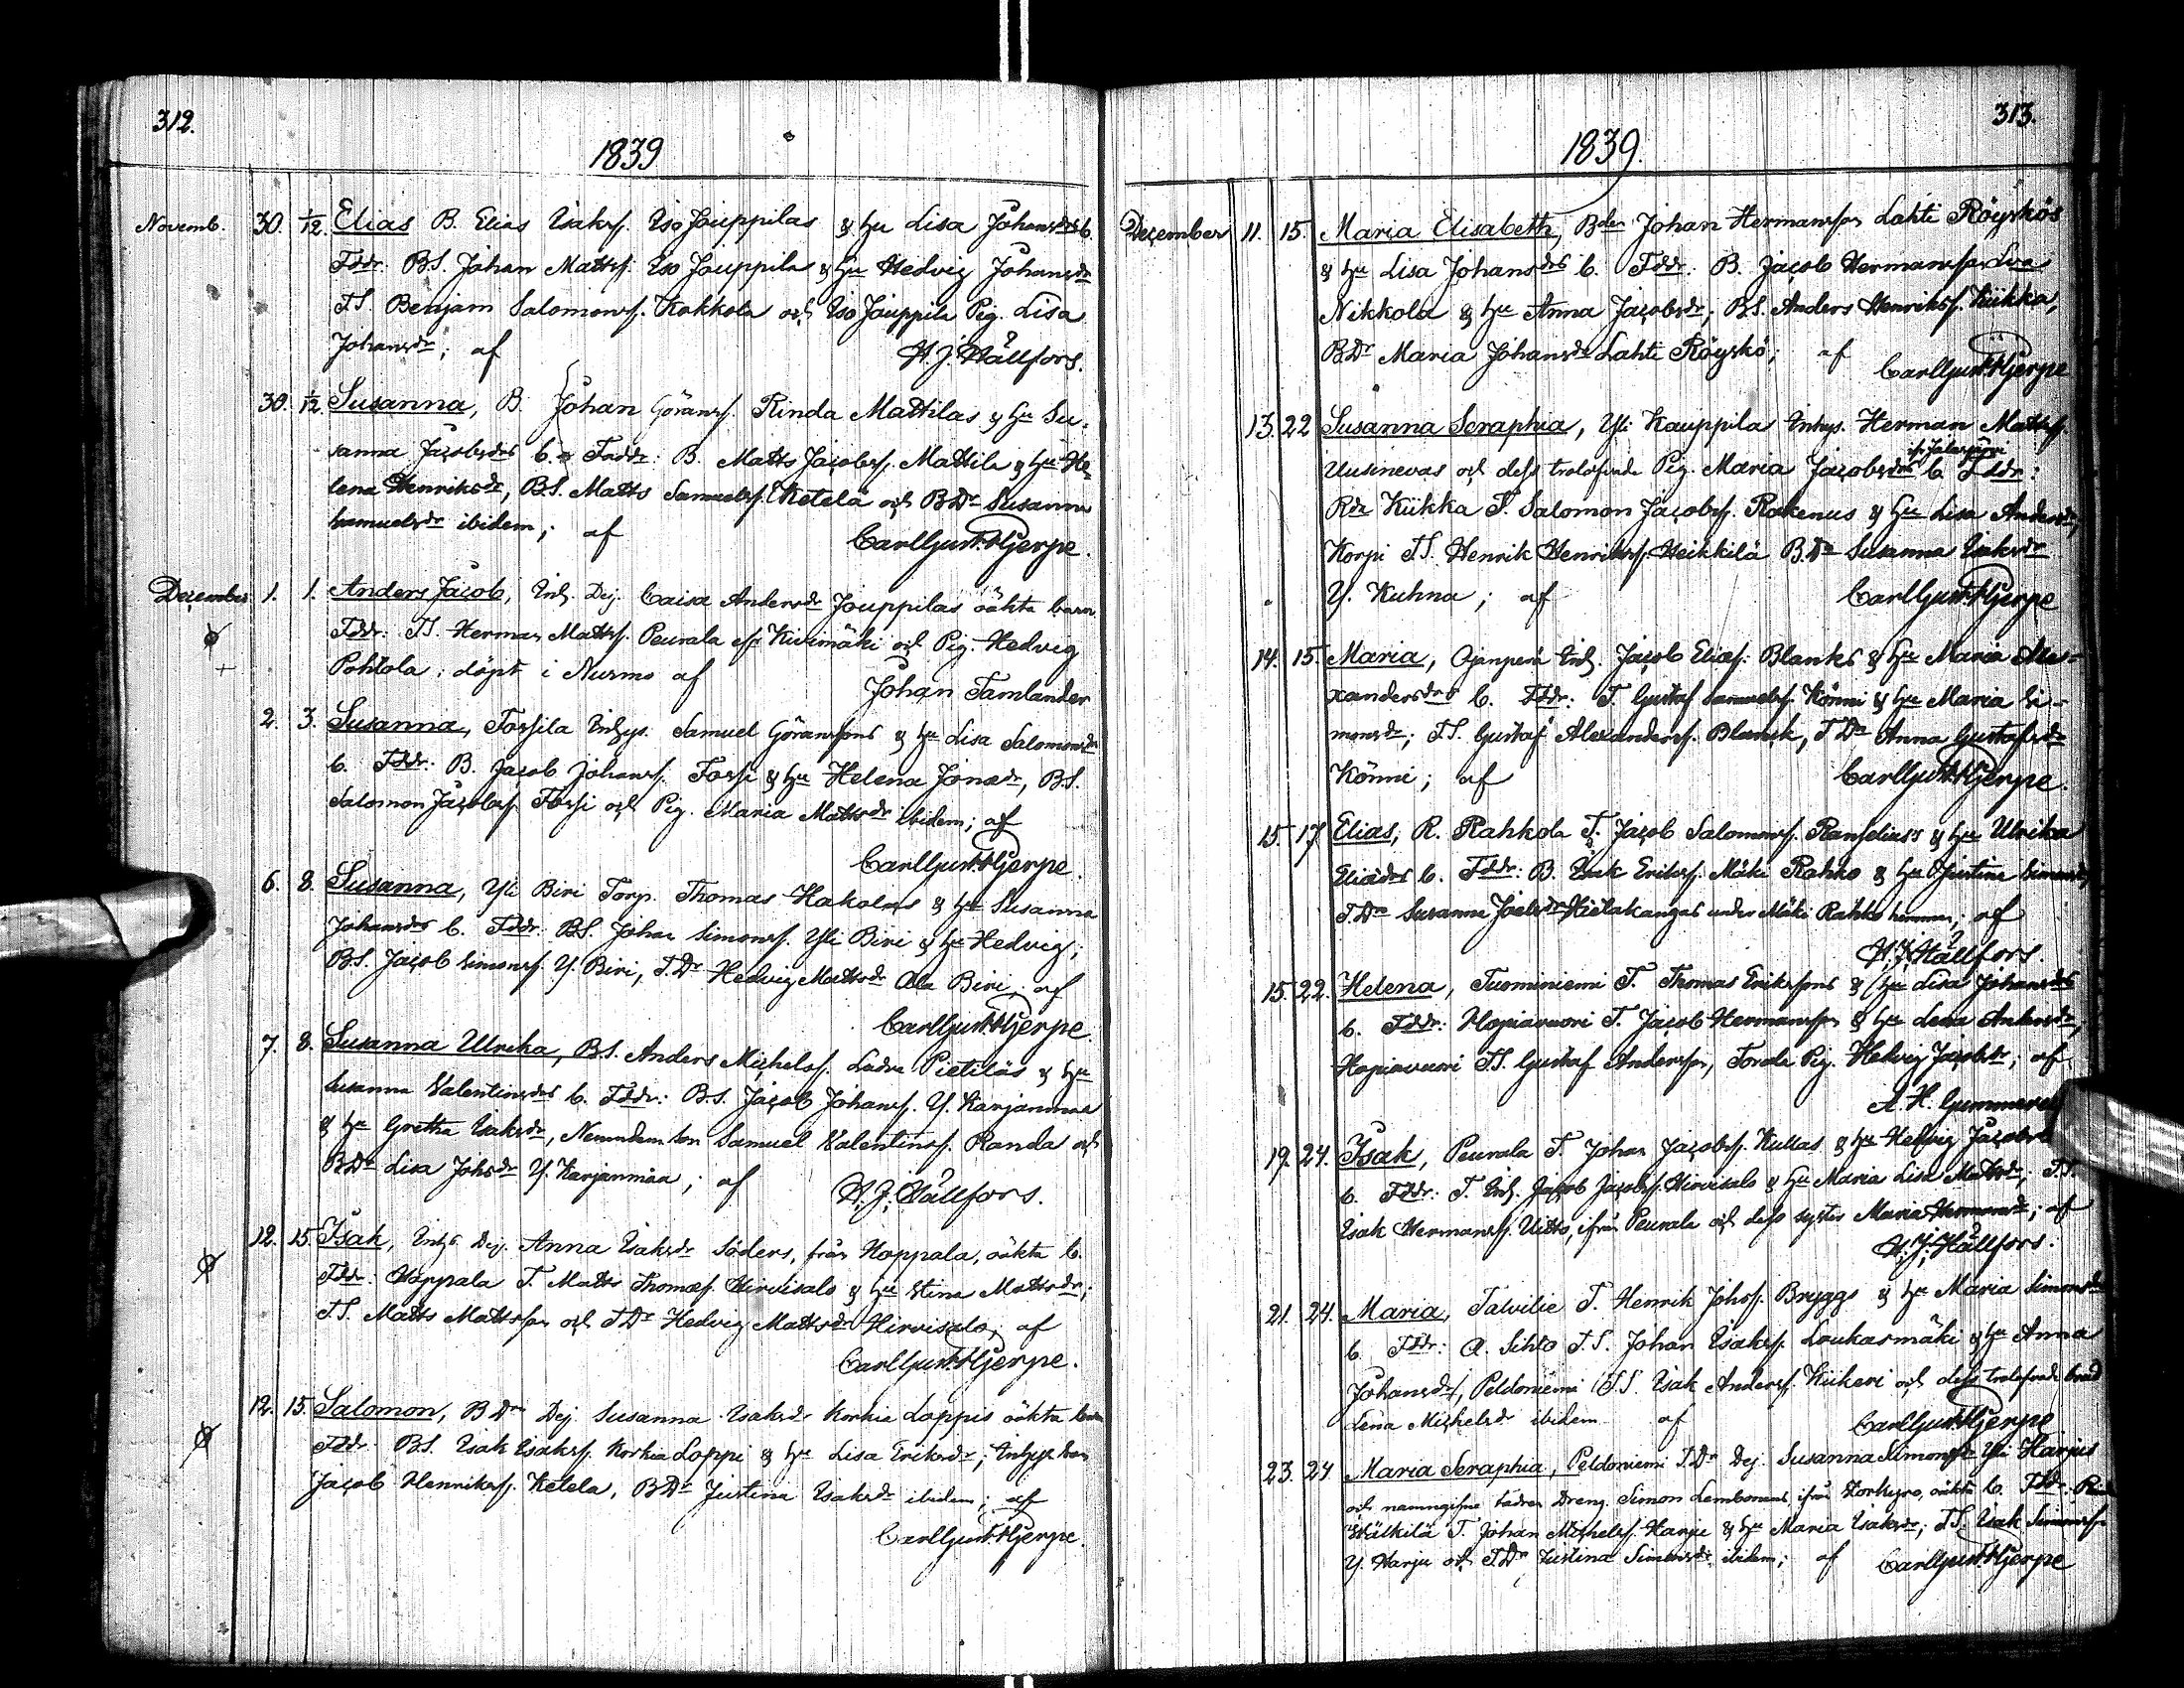 312.
1839
Novemb. 30. 1/12. Elias B. Elias Isakss. Iso Jouppilas & hu Lisa Johansdrs b.
Fddr: BS. Johan Mattss. Iso Jouppila & hu Hedvig Johansdr
TS. Benjam Salomonss. Kokkola och Iso Jouppila Pig. Lisa
Johansdr; af H. J. Hällfors.
30. 1/12 Susanna, B. Johan Göranss. Rinda Mattilas & hu Su-
sanna Jacobsdrs b. Faddr: B. Matts Jacobss. Mattila & hu He-
lena Henriksdr, B.S. Matts Samuelss. Ketelä och BDr Susanna
Samuelsdr ibidem; af Carl Gust. Hjerpe.
December 1. 1. Anders Jacob, Inh. Dej. Caisa Andersdr Jouppilas oäkta barn
Fddr: TS. Herman Mattss. Peurala Kivimäki och Pig. Hedvig
Pohtola; döpt i Nurmo af Johan Tamlander
2. 3. Susanna, Torsila Inhys. Samuel Göranssons & hu Lisa Salomonsdrs
b. Fddr: B. Jacob Johanss. Forsi & hu Helena Jonædr, B.S.
Salomon Jacobss. Forsi och Pig. Maria Mattsdr ibidem; af
Carl Gust. Hjerpe.
6. 8. Susanna, Yli Biri Torp. Thomas Hakolas & hu Susanna
Johansdrs b. Fddr: BS. Johan Simonss. Yli Biri & hu Hedvig;
BS. Jacob Simonss. Y. Biri, T.Dr Hedvig Mattsdr Ala Biri, af
Carl Gust. Hjerpe.
7. 8. Susanna Ulrika, BS. Anders Michelss. Ladva Pietiläs & hu
Susanna Valentinsdrs b. Fddr: B.S. Jacob Johanss. Y. Karjanmaa
& hu Gretha Isaksdr, Nemndem. son Samuel Valentinss. Randa och
BDr Lisa Johsdr Y. Karjanmaa; af H. J. Hällfors.
12. 15. Isak, Inhys Dej. Anna Isaksdr Söders, från Hoppala, oäkta b.
Fddr: Hoppala T. Matts Thomæs. Hirvisalo & hu Stina Mattsdr;
T.S. Matts Mattsson och TDr Hedvig Mattsdr Hirvisalo, af
Carl Gust. Hjerpe.
12. 15. Salomon, BDr Dej Susanna Isaksdr Korkia Loppis oäkta barn
Fddr: BS. Isak Isakss. Korkia Loppi & hu Lisa Eriksdr; Inhyse
Jacob Henrikss. Ketela, BDr Justina Isaksdr ibidem; af
Carl Gust. Hjerpe.
313.
1839.
December 11. 15. Maria Elisabeth, Bden Johan Hermansson Lahti Röyskös
& hu Lisa Johansdrs b. Fddr: B. Jacob Hermansson
Nikkola & hu Anna Jacobsdr; BS. Anders Henrikss. Kiikka,
BDr Maria Johansdr Lahti Röyskö; af Carl Gust. Hjerpe
13. 22 Susanna Seraphia, Yli Kauppila Inhys. Herman Mattss.
Uusinevas och dess trolofvade Pig. Maria Jacobsdrs b. Fddr:
Kiikka T. Salomon Jacobss. Rakenus & hu Lisa Andersdr;
Korpi TS. Henrik Henrikss. Heikkilä B.Dr Susanna Isaksdr
Y. Kuhna; af Carl Gust. Hjerpe
14. 15. Maria, Ojanperä Inh. Jacob Eliæs. Blanks & hu Maria Ale-
xandersdrs b. Fddr: T. Gustaf Samuelss. Könni & hu Maria Si-
monsdr; T.S. Gustaf Alexanderss. Blank, TDr Anna Gustafsdr
Könni; af Carl Gust. Hjerpe.
15. 17. Elias, R. Rahkola T. Jacob Salomonss. & hu Ulrika
Eliædrs b. Fddr: B. Isak Erikss. Mäki Rahko & hu Justina Simonsdr,
T.Dr Susanna Joelsdr Hietakangas under Mäki Rahko hemman; af
H. J. Hällfors.
15. 22. Helena, Tuominiemi T. Thomas Erikssons & hu Lisa Johansdrs
b. Fddr: Hopiavuori T. Jacob Hermansson & hu Lena Andersdr,
Hopiavuori T.S. Gustaf Andersson, Torala Pig. Hedvig Jacobsdr; af
A. H. Gummerus
19. 24. Isak, Peurala T. Johan Jacobss. Kullas & hu Hedvig Jacobsdrs
b. Fddr: T. Inh. Jacob Jacobss. Hirvisalo & hu Maria Lisa Mattsdr; T.S.
Isak Hermanss. Uitto, ifrån Peurala och dess syster Maria Hermansdr; af
H. J. Hällfors.
21. 24. Maria, Talvilie T. Henrik Johss. Bryggs & hu Maria Simonsdrs
b. Fddr: A. Sihto T.S. Johan Isakss. Loukasmäki & hu Anna
Johansdr, Peldoniemi T.S. Isak Anderss. Kiikeri och dess trolofvade brud
Lena Michelsdr ibidem af Carl Gust. Hjerpe
23. 24 Maria Seraphia, Peldoniemi T.Dr Dej. Susanna Simonsdr Yli Harjus
och namngifne fadren Dreng. Simon Lembonens ifrån Storkyro, oäkta b. Fddr:
Wälkilä T. Johan Michelss. Harju & hu Maria Isaksdr; T.S. Isak Simonsson
Y. Harju och TDr Justina Simonsdr ibidem; af Carl Gust. Hjerpe